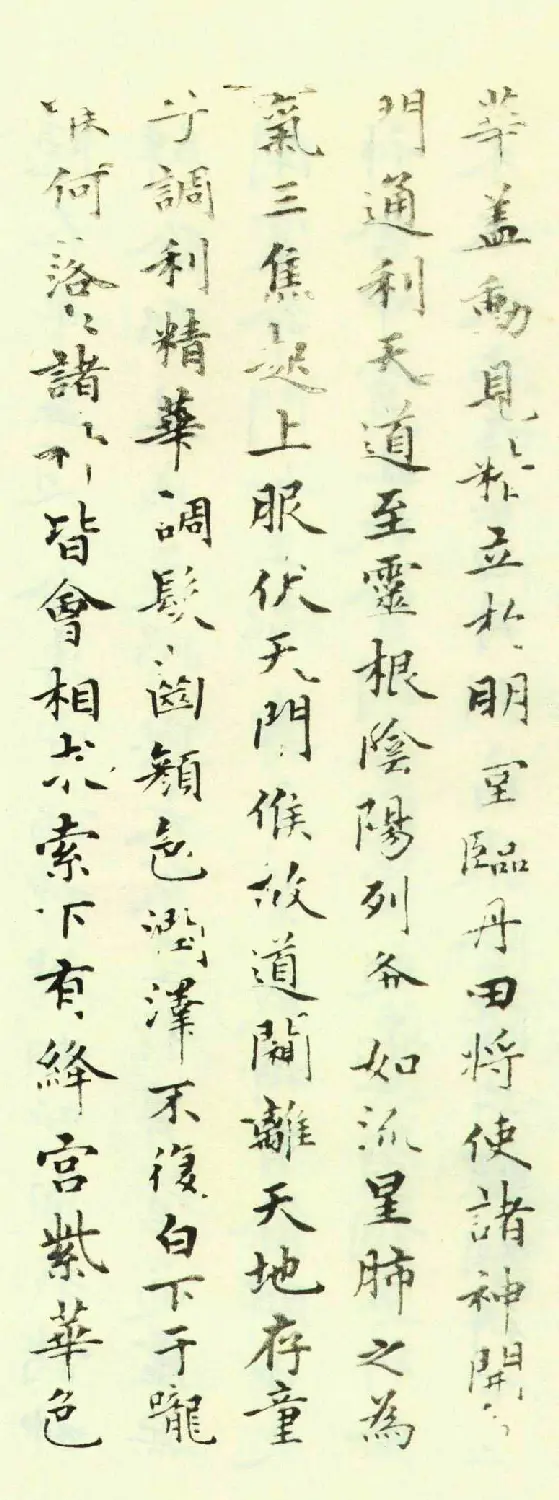 華盖動見精立於明堂臨丹田將使諸神開命
門通利天道至靈根陰陽列布如流星肺之為
氣三焦起上服伏天門候故道闚離天地存童
子調利精華調髮齒顏色潤澤不復白下于嚨
喉何落落諸神皆會相求索下有絳宮紫華色